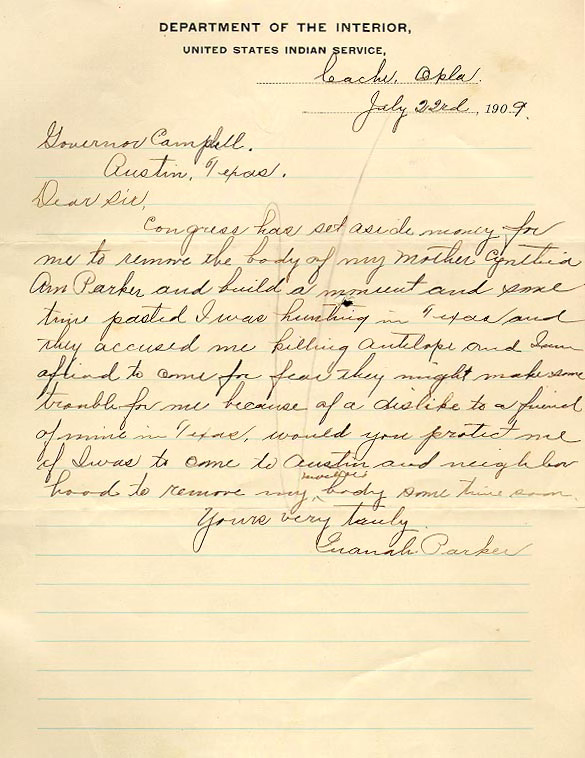 DEPARTMENT OF THE INTERIOR,
UNITED STATES INDIAN SERVICE,
Cache, Okla.
July 22rd, 1909.
Governor Campbell.
Austin, Texas.
Dear Sir,
Congress has set aside money for
me to remove the body of my Mother Cynthia
Ann Parker and build a monument and some
time pasted I was hunting in Texas and
they accused me killing antelope and I am
afriad to come for fear they might make some
trouble for me because of a dislike to a friend
of mine in Texas, would you protect me
if I was to come to Austin and neighbor
hood to remove my mother's body some time soon.
Yours very truly.
Quanah Parker